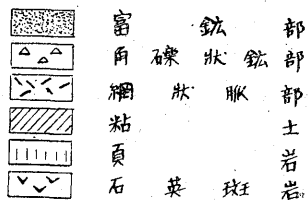 富鉱部
角礫狀鉱部
網狀脈部
粘土
頁岩
石英斑岩